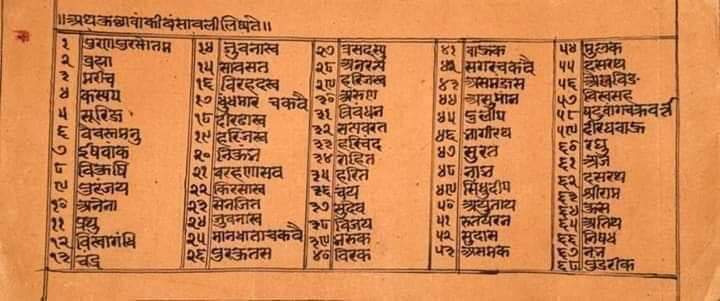 ॥अथकछावांकीवंसावलीलिष्यते॥
१ पुराणपुरसोतम
२ ब्रह्मा
३ मरीच
४ कस्यप
५ सूरिज
६ वैवस्वमनु
७ ईषवाक
८ विकुषि
९ पुरंजय
१० अनेना
११ प्रथु
१२ विस्वगंधि
१३ चंद्र
१४ जुवनास्व
१५ सावसत
१६ विरहदस्व
१७ धुंधमार चकवै
१८ दीरढास्व
१९ हरिजस्व
२० निकुंभ
२१ वरहणासव
२२ किरसास्व
२३ सेनजित
२४ जुवनास्व
२५ मानधाताचकवै
२६ पुरकुतस
२७ त्रसदस्यु
२८ अनरन्य
२९ हरिजस्व
३० अरुण
३१ त्रिवंधन
३२ सत्यव्रत
३३ हरिचंद
३४ रोहित
३५ हरित
३६ चंप
३७ सुदेव
३८ विजय
३९ भरूक
४० व्रिक
४१ वाऊक
४२ सगरचकवै
४३ असमंजस
४४ अंसुमान
४५ दुलीप
४६ भागीरथ
४७ सुरत
४८ नाभ
४९ सिंधुदीप
५० अयुताय
५१ रुतपरन
५२ सुदास
५३ असमक
५४ मूलक
५५ दसरथ
५६
५७ विस्वसह
५८ षटवांगचक्रवर्त
५९ दीरघवाऊ
६० रघु
६१ अज
६२ दसरथ
६३ श्रीराम
६४ कुस
६५ अतिथ
६६ निषध
६७ नभ
६८ पुंडरीक